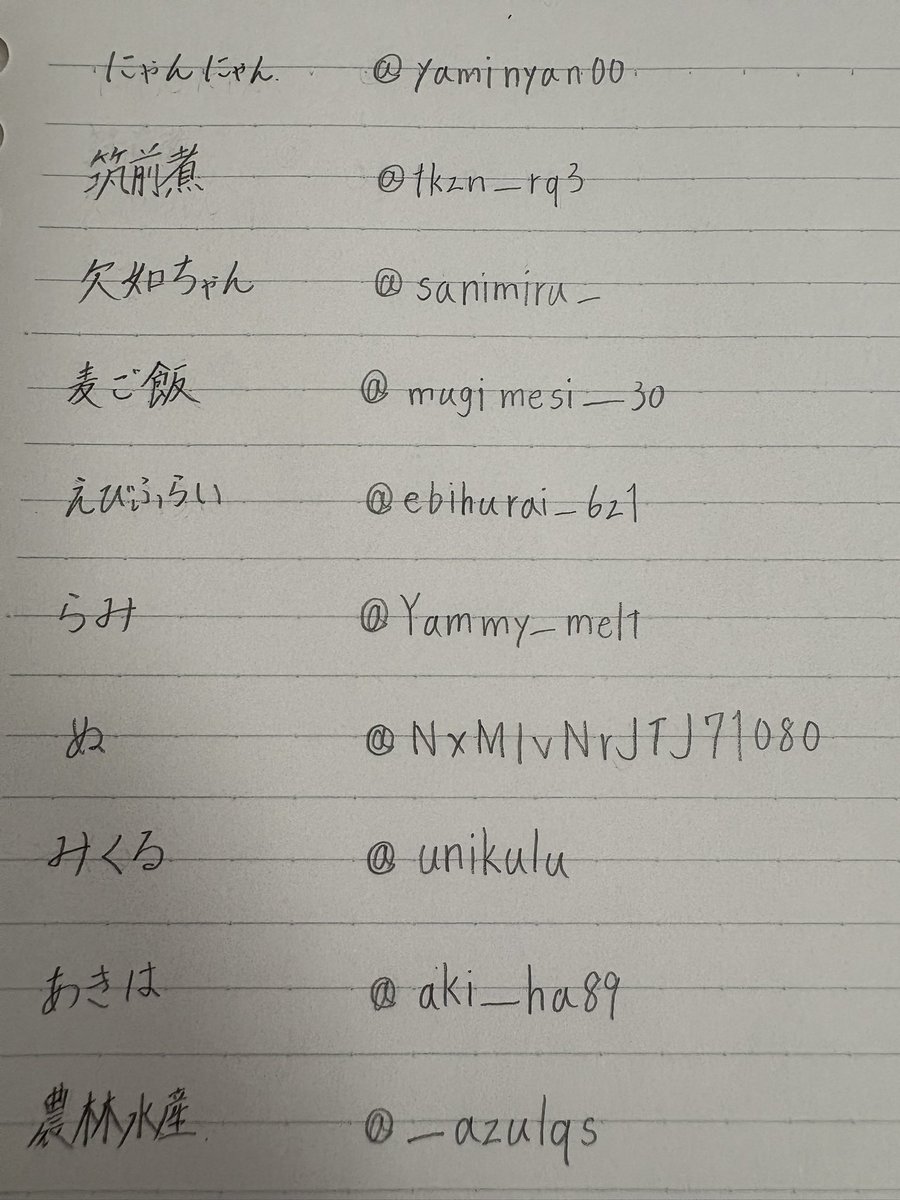 にゃんにゃん @yaminyan00
筑前煮 @tkzn_rq3
欠如ちゃん @sanimiru_
麦ご飯 @mugimesi_30
えびふらい @ebihurai_621
らみ @Yammy_melt
ぬ @NxMlvNrJTJ71080
みくる @unikulu
あきは @aki_ha89
農林水産 @_azulqs